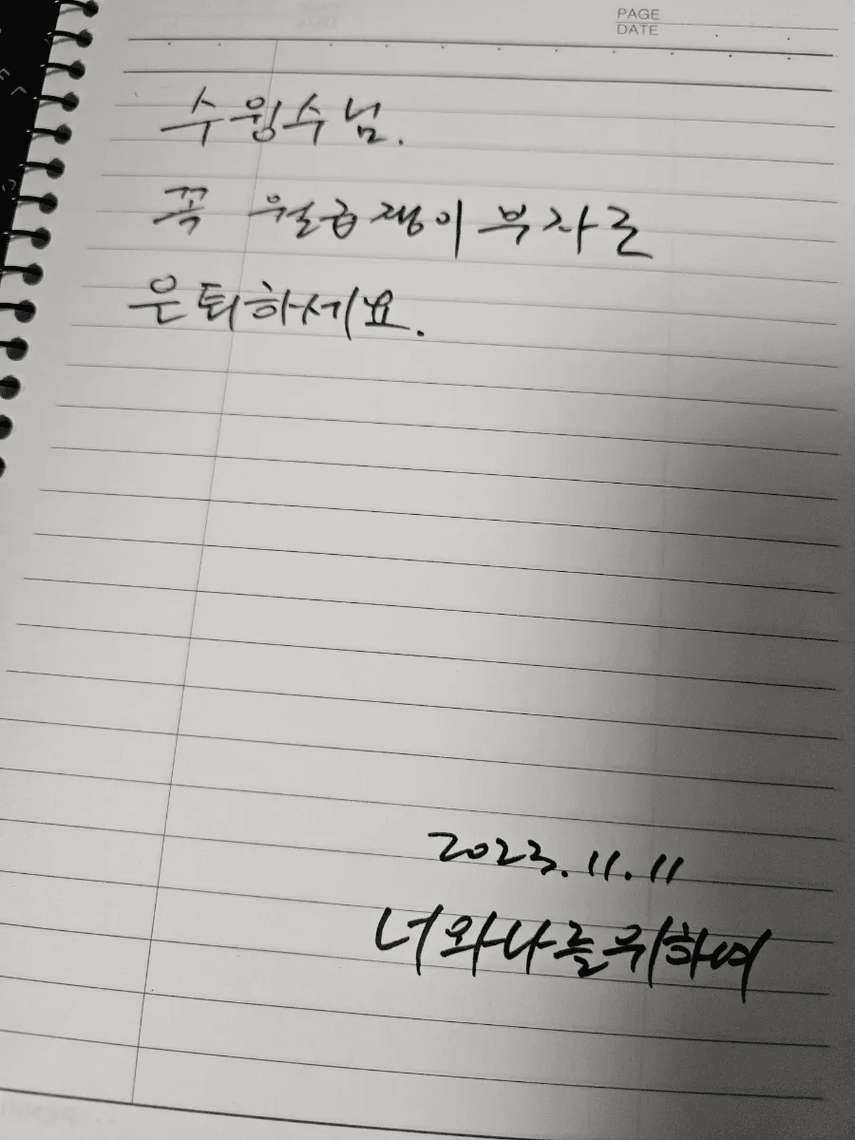 PAGE
DATE
수윙수님.
꼭 월급쟁이 부자로
은퇴하세요.
2023.11.11
너와나를위하여